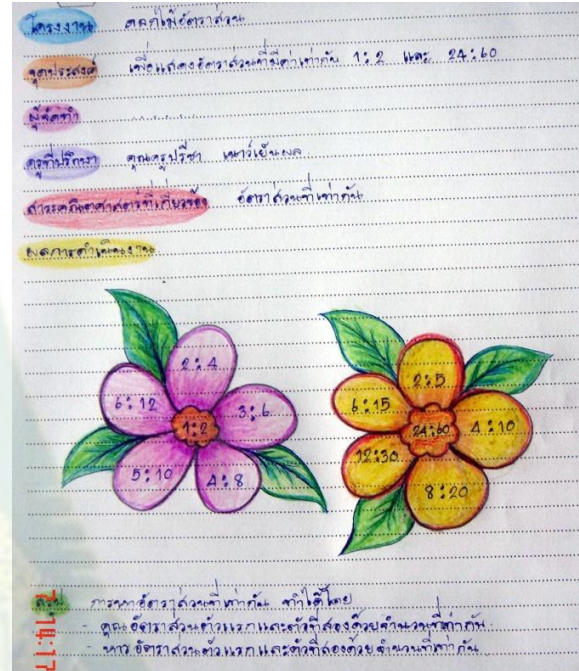 โครงงาน ดอกไม้อัตราส่วน
จุดประสงค์ เพื่อแสดงอัตราส่วนที่มีค่าเท่ากัน 1:2 และ 24:60
ผู้จัดทำ ............
ครูที่ปรึกษา คุณครูปรีชา เนาว์เย็นผล
สาระคณิตศาสตร์ที่เกี่ยวข้อง อัตราส่วนที่เท่ากัน
ผลการดำเนินงาน
2:4
6:12
3:6
1:2
5:10
4:8
2:5
6:15
4:10
24:60
12:30
8:20
สรุป การหาอัตราส่วนที่เท่ากัน ทำได้โดย
- คูณอัตราส่วนตัวแรกและตัวที่สองด้วยจำนวนที่เท่ากัน
- หารอัตราส่วนตัวแรกและตัวที่สองด้วยจำนวนที่เท่ากัน